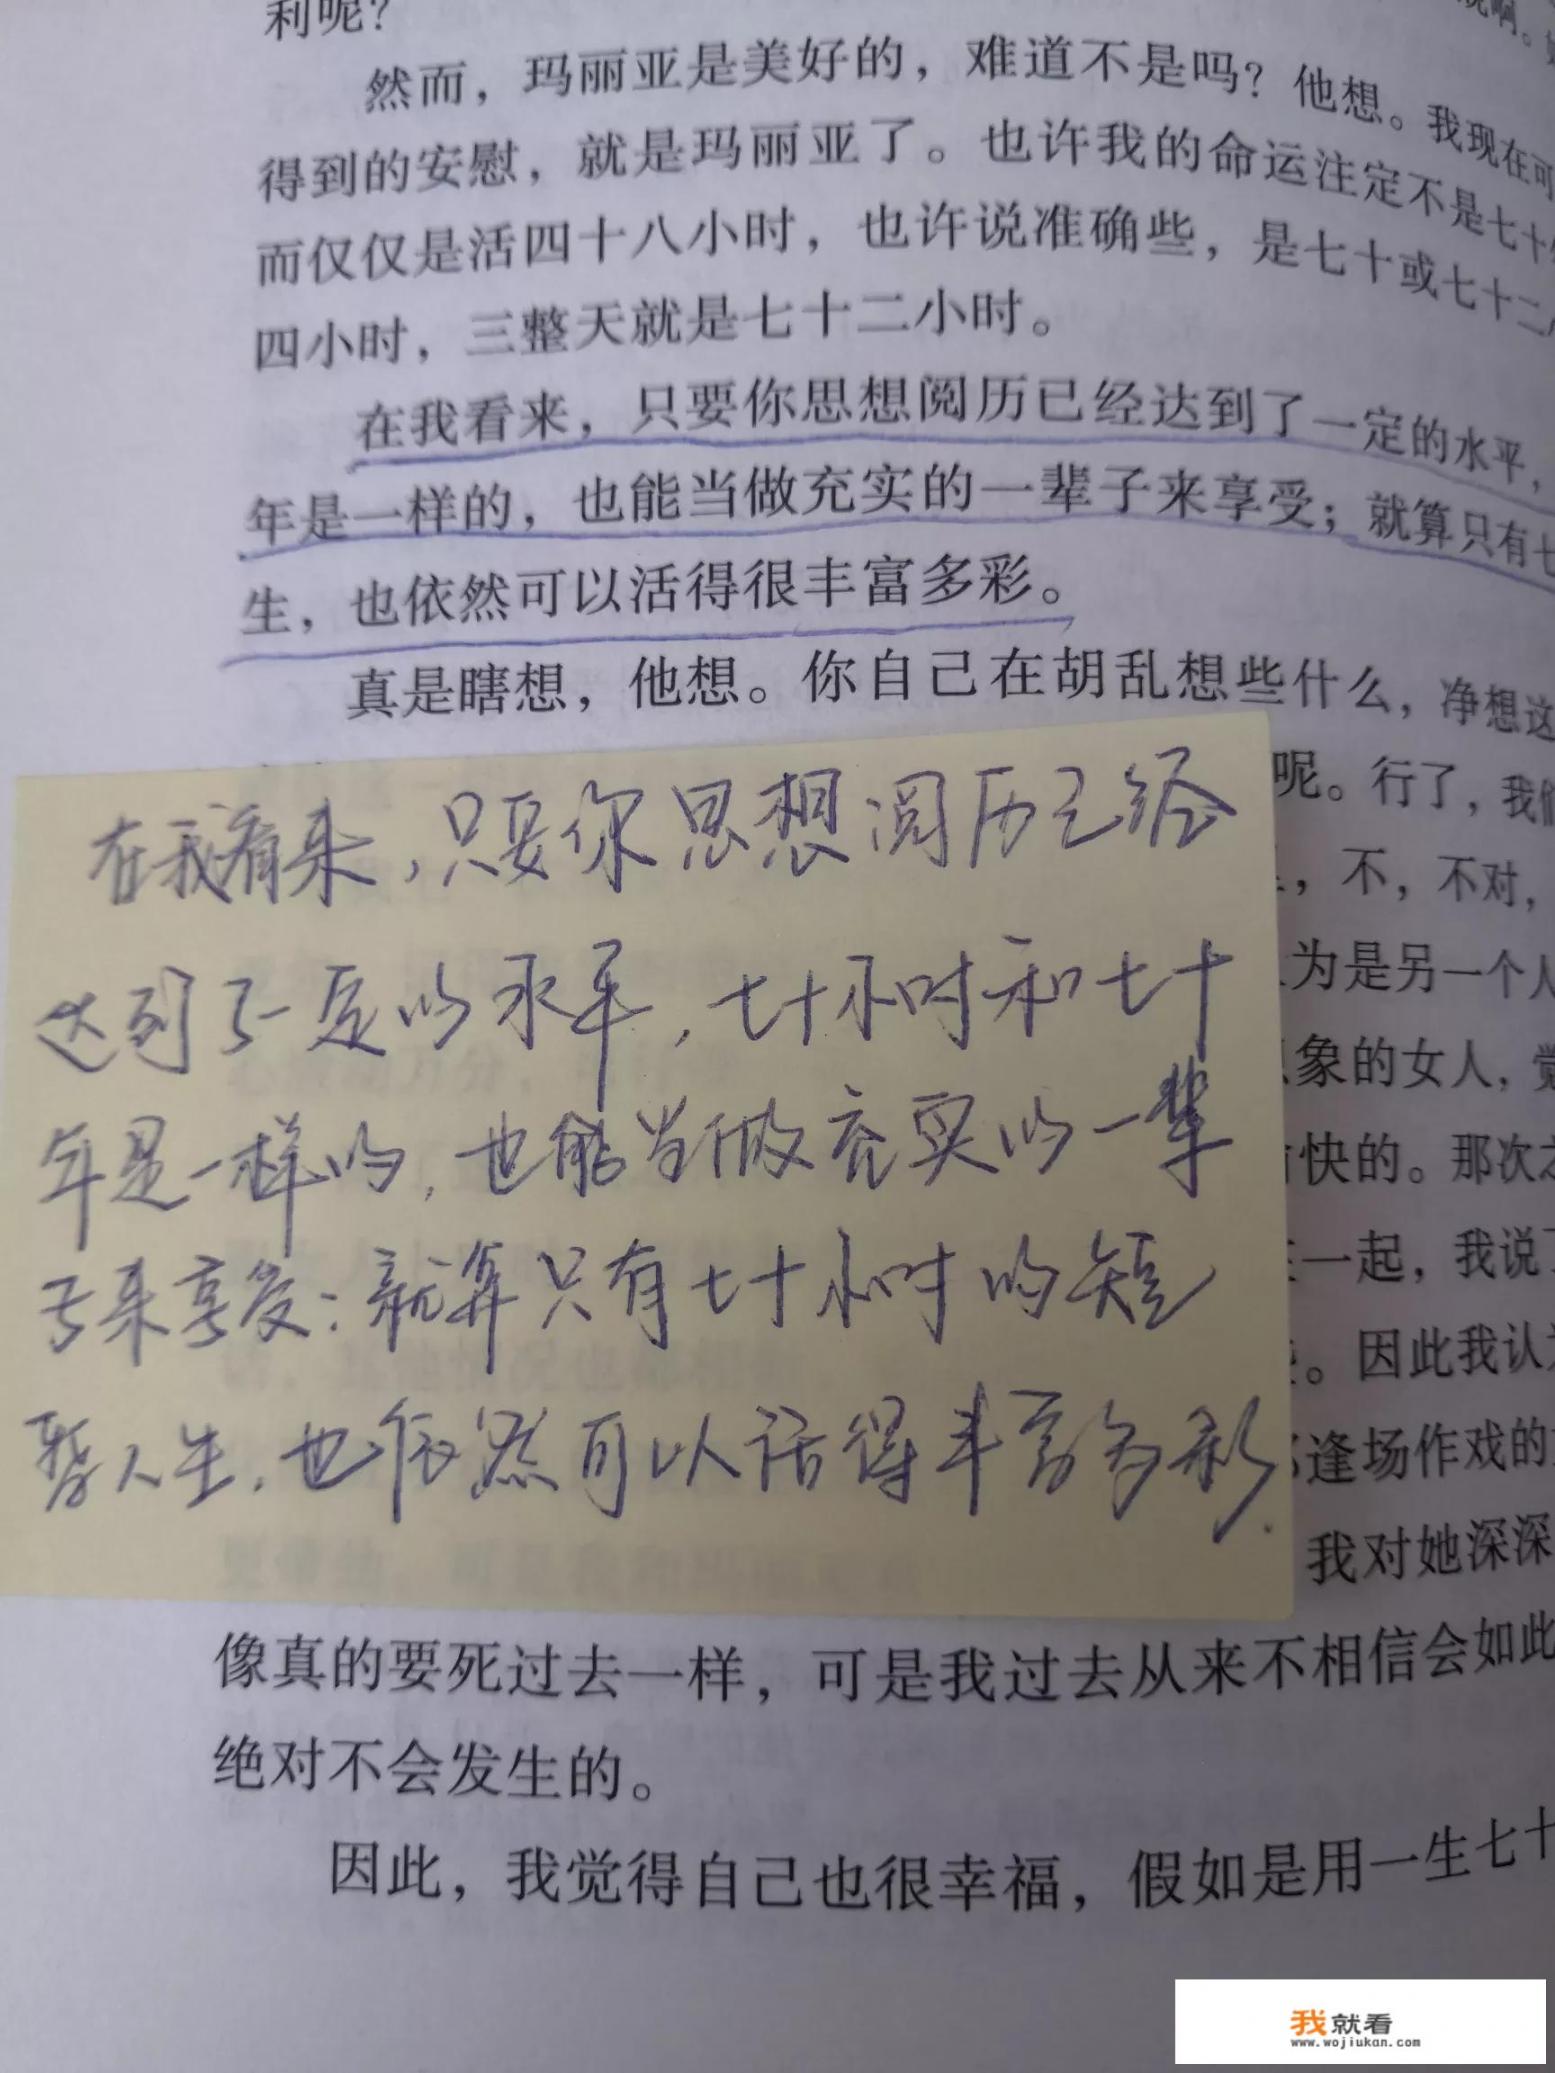 利呢？
然而，玛丽亚是美好的，难道不是吗？他想。我现在可
得到的安慰，就是玛丽亚了。也许我的命运注定不是七十
而仅仅是活四十八小时，也许说准确些，是七十或七十二
四小时，三整天就是七十二小时。
在我看来，只要你思想阅历已经达到了一定的水平，
年是一样的，也能当做充实的一辈子来享受；就算只有七
生，也依然可以活得很丰富多彩。
真是瞎想，他想。你自己在胡乱想些什么，净想这
呢。行了，我们
在我看来，只要你思想阅历已经
达到了一定的水平，七十小时和七十
年是一样的，也能当做充实的一辈
子来享受；就算只有七十小时的短
暂人生，也依然可以活得丰富多彩.
，不，不对，
为是另一个人
象的女人，觉
快的。那次
一起，我说了
。因此我认为
逢场作戏的
我对她深深
像真的要死过去一样，可是我过去从来不相信会如此
绝对不会发生的。
因此，我觉得自己也很幸福，假如是用一生七十
我就看
www.wojiukan.com